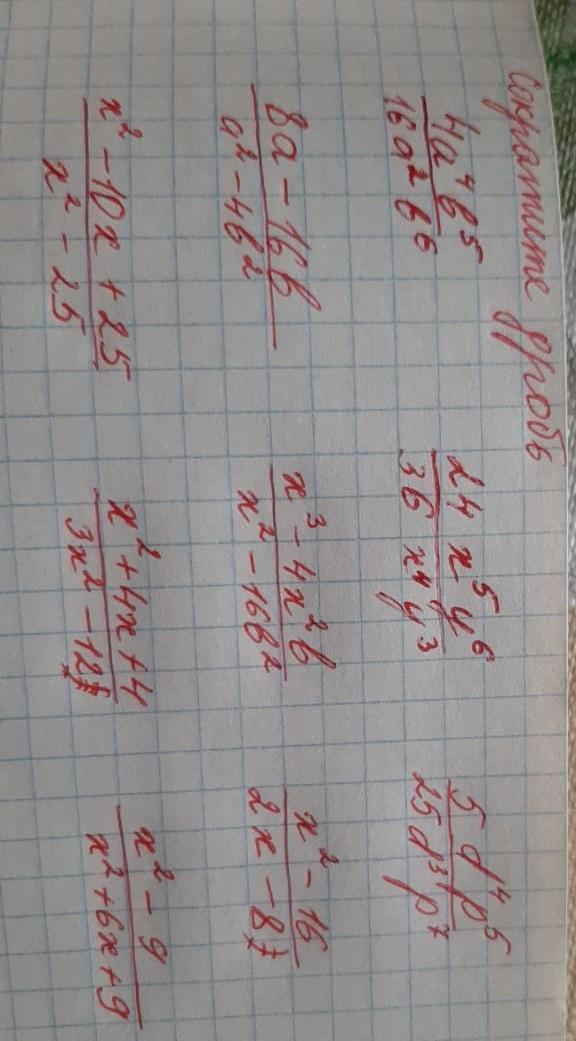 Сократите дробь
4a⁴b⁵/16a²b⁶ 24x⁵y⁶/36x⁴y³ 5d⁴p⁵/25d³p⁷
8a - 16b/a² - 4b² x³ - 4x²b/x² - 16b² x² - 16/2x - 8
x² - 10x + 25/x² - 25 x² + 4x + 4/3x² - 12 x² - 9/x² + 6x + 9